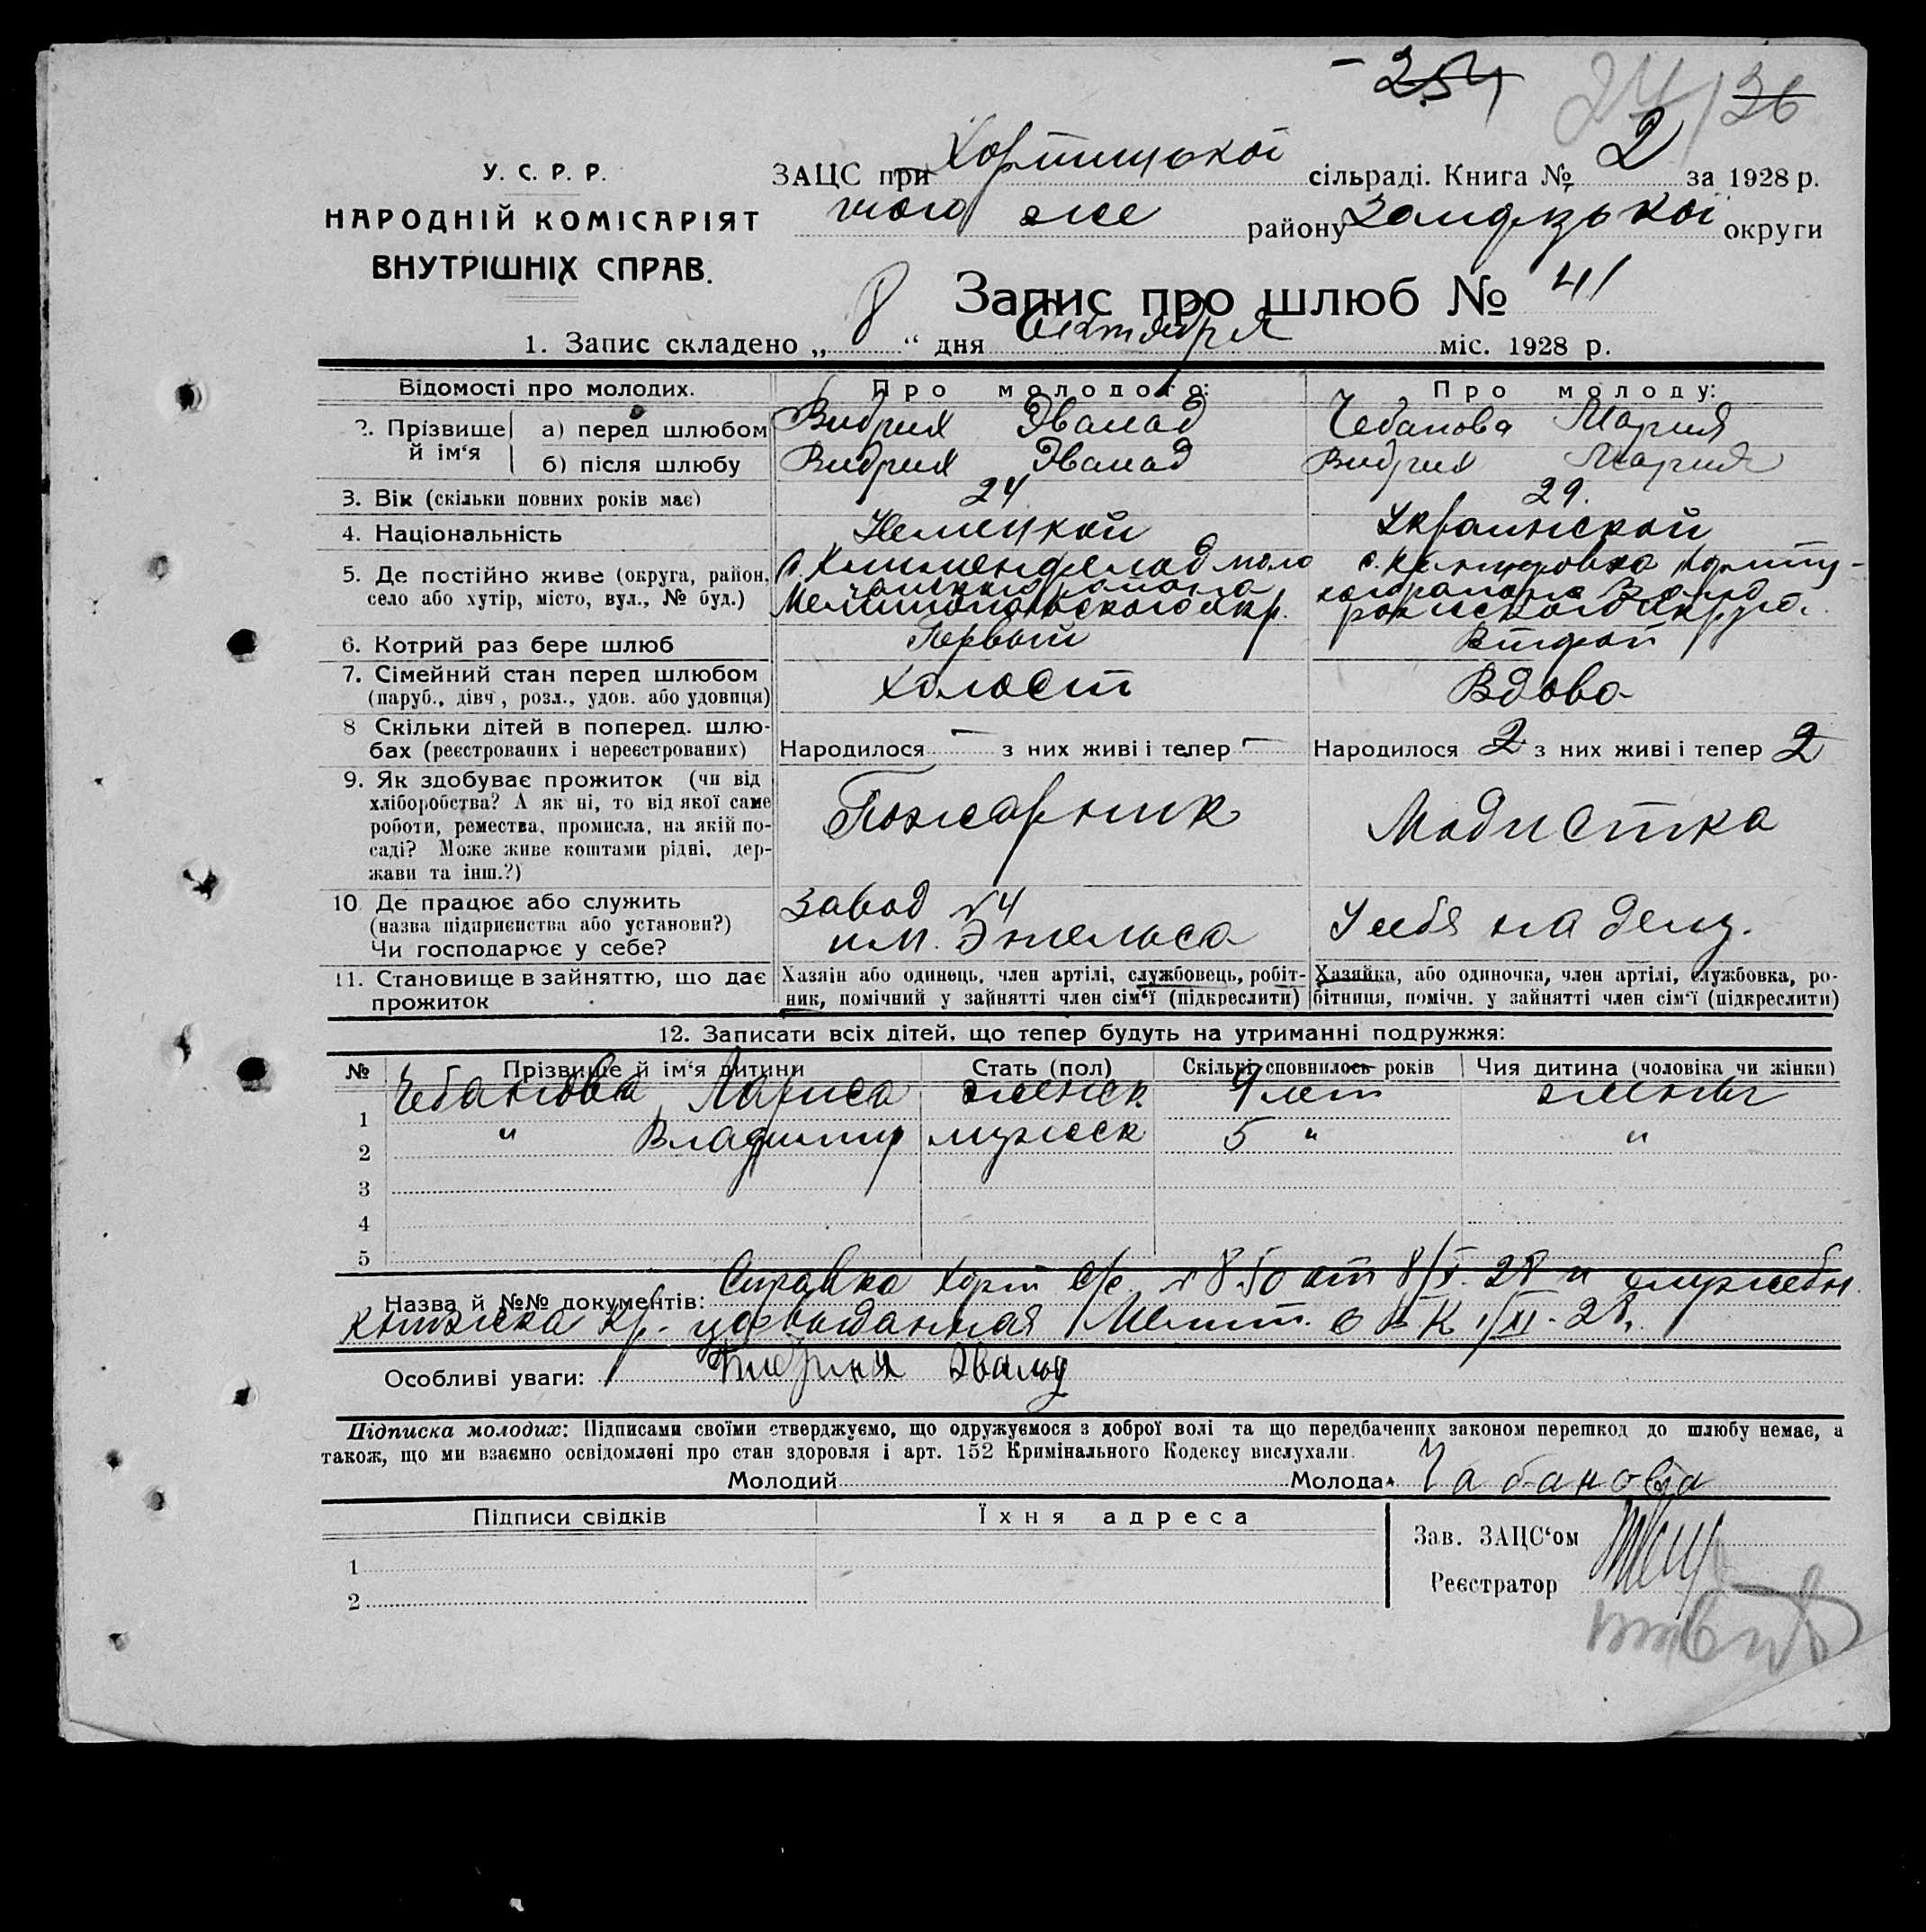 - 254 24/36
У. С. Р. Р.
НАРОДНІЙ КОМІСАРІЯТ
ВНУТРІШНІХ СПРАВ.
ЗАЦС при Хортицької сільраді. Книга № 2 за 1928 р.
того же району округи
Запис про шлюб № 41
1. Запис складено „ 8 “ дня Октября міс. 1928 р.
Відомості про молодих. Про молодого: Про молоду:
2. Прізвище й ім‘я а) перед шлюбом Видрих Эвалад Чебанова Мария
б) після шлюбу Видрих Эвалад Видрих Мария
3. Вік (скільки повних років має) 24 29.
4. Національність Немецкой Украинской
5. Де постійно живе (округа, район, село або хутір, місто, вул., № буд.) Мелитопольского окр.
6. Котрий раз бере шлюб Первый Второй
7. Сімейний стан перед шлюбом Холост Вдова
(паруб., дівч., розл., удов. або удовиця)
8 Скільки дітей в поперед. шлю-
бах (реєстрованих і нереєстрованих) Народилося — з них живі і тепер — Народилося 2 з них живі і тепер 2
9. Як здобуває прожиток (чи від
хліборобства? А як ні, то від якої саме
роботи, ремества, промисла, на якій по-
саді? Може живе коштами рідні, дер-
жави та інш.?) Пожарник Модистка
10. Де працює або служить Завод №4
(назва підприємства або установи?) им. Энгельса У себя на дому.
Чи господарює у себе?
11. Становище в зайняттю, що дає прожиток
Хазяін або одинець, член артілі, службовець, робіт-
ник, помічний у зайнятті член сім‘ї (підкреслити)
Хазяйка, або одиночка, член артілі, службовка, ро-
бітниця, помічн. у зайнятті член сім‘ї (підкреслити)
12. Записати всіх дітей, що тепер будуть на утриманні подружжя:
№ Прізвище й ім‘я дитини Стать (пол) Скільки сповнилось років Чия дитина (чоловіка чи жінки)
1 Чебанова Лариса женск 9 лет жены
2 " Владимир мужеск 5 " "
3
4
5
Назва й №№ документів: Справка Хорт с/с №850 от 8/X-28 и служебн.
книжка выданная Мелит. О В К 1/XI-28.
Особливі уваги: Видрих Эвальд
Підписка молодих: Підписами своїми стверджуємо, що одружуємося з доброї волі та що передбачених законом перешкод до шлюбу немає, а
також, що ми взаємно освідомлені про стан здоровля і арт. 152 Кримінального Кодексу вислухали.
Молодий Молода Чабанова
Підписи свідків Їхня адреса
Зав. ЗАЦС‘ом
Реєстратор
1
2